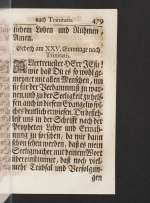 nach Trinitatis. 479
sichem Loben und Rühmen,
Amen.
Gebeth am XXV. Sonntage nach
Trinitatis.
Allertreuester HErr JEsu!
wie hast Du es so wohl ge-
meynet mit allen Menschen, um
sie für der Verdammniß zu war-
nen und zu der Seligkeit zu helf-
fen auch in diesem Evangelio sol-
ches deutlich erwiesen. Du hast
uns in der Schrifft nach der
Propheten Lehre und Ermah-
nung zu forschen, da wir dann
schon sehen werden, daß es mein
Seeligmacher mit deinem Wort
übereinstimmet, daß noch viel-
mehr Trübsal und Verfolgun-
gen